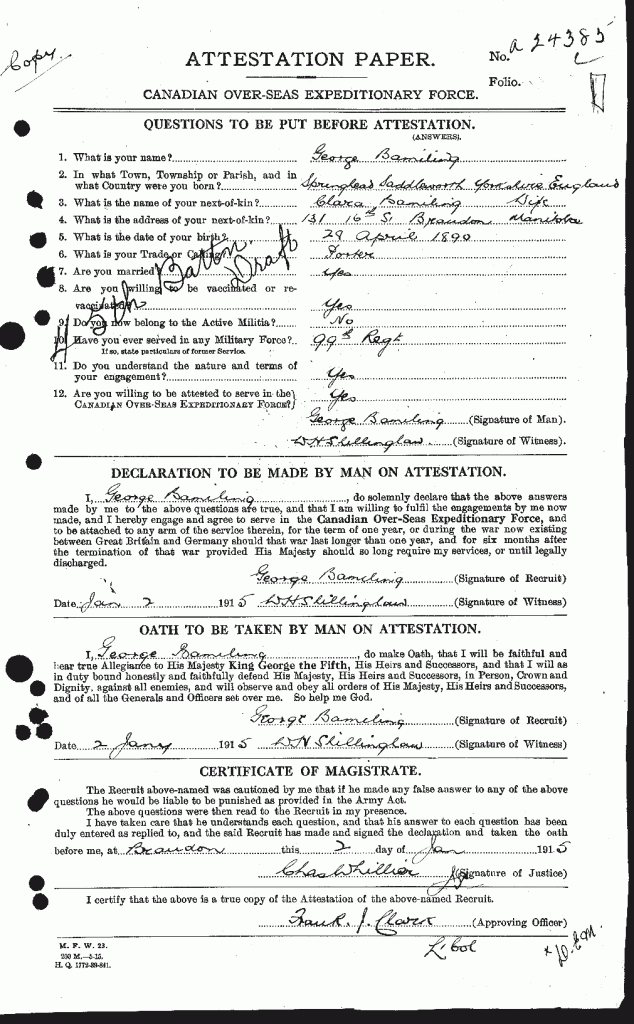 Copy
No. a 24385
ATTESTATION PAPER.
Folio.
CANADIAN OVER-SEAS EXPEDITIONARY FORCE.
QUESTIONS TO BE PUT BEFORE ATTESTATION.
(ANSWERS).
1. What is your name? George Bamiling
2. In what Town, Township or Parish, and in
what Country were you born? Springhead Saddleworth Yorkshire England
3. What is the name of your next-of-kin? Clara Bamiling Wife
4. What is the address of your next-of-kin? 131 16th S. Brandon Manitoba
5. What is the date of your birth? 29 April 1890
6. What is your Trade or Calling? Porter
7. Are you married? Yes
8. Are you willing to be vaccinated or re-
vaccinated? Yes
9. Do you now belong to the Active Militia? No
10. Have you ever served in any Military Force? 99th Regt
If so, state particulars of former Service.
11. Do you understand the nature and terms of
your engagement? Yes
12. Are you willing to be attested to serve in the
CANADIAN OVER-SEAS EXPEDITIONARY FORCE? Yes
45th Batton Draft
George Bamiling (Signature of Man).
W H Shillinglaw (Signature of Witness).
DECLARATION TO BE MADE BY MAN ON ATTESTATION.
I, George Bamiling, do solemnly declare that the above answers
made by me to the above questions are true, and that I am willing to fulfil the engagements by me now
made, and I hereby engage and agree to serve in the Canadian Over-Seas Expeditionary Force, and
to be attached to any arm of the service therein, for the term of one year, or during the war now existing
between Great Britain and Germany should that war last longer than one year, and for six months after
the termination of that war provided His Majesty should so long require my services, or until legally
discharged.
George Bamiling (Signature of Recruit)
Date Jan 2 1915 W H Shillinglaw (Signature of Witness)
OATH TO BE TAKEN BY MAN ON ATTESTATION.
I, George Bamiling, do make Oath, that I will be faithful and
bear true Allegiance to His Majesty King George the Fifth, His Heirs and Successors, and that I will as
in duty bound honestly and faithfully defend His Majesty, His Heirs and Successors, in Person, Crown and
Dignity, against all enemies, and will observe and obey all orders of His Majesty, His Heirs and Successors,
and of all the Generals and Officers set over me. So help me God.
George Bamiling (Signature of Recruit)
Date 2 Jany 1915 W H Shillinglaw (Signature of Witness)
CERTIFICATE OF MAGISTRATE.
The Recruit above-named was cautioned by me that if he made any false answer to any of the above
questions he would be liable to be punished as provided in the Army Act.
The above questions were then read to the Recruit in my presence.
I have taken care that he understands each question, and that his answer to each question has been
duly entered as replied to, and the said Recruit has made and signed the declaration and taken the oath
before me, at Brandon this 2 day of Jan 1915
Chas Whillier (Signature of Justice)
I certify that the above is a true copy of the Attestation of the above-named Recruit.
Frank J. Clark (Approving Officer)
L' Col
M. F. W. 23.
200 M.—5-15.
H. Q. 1772-39-841.